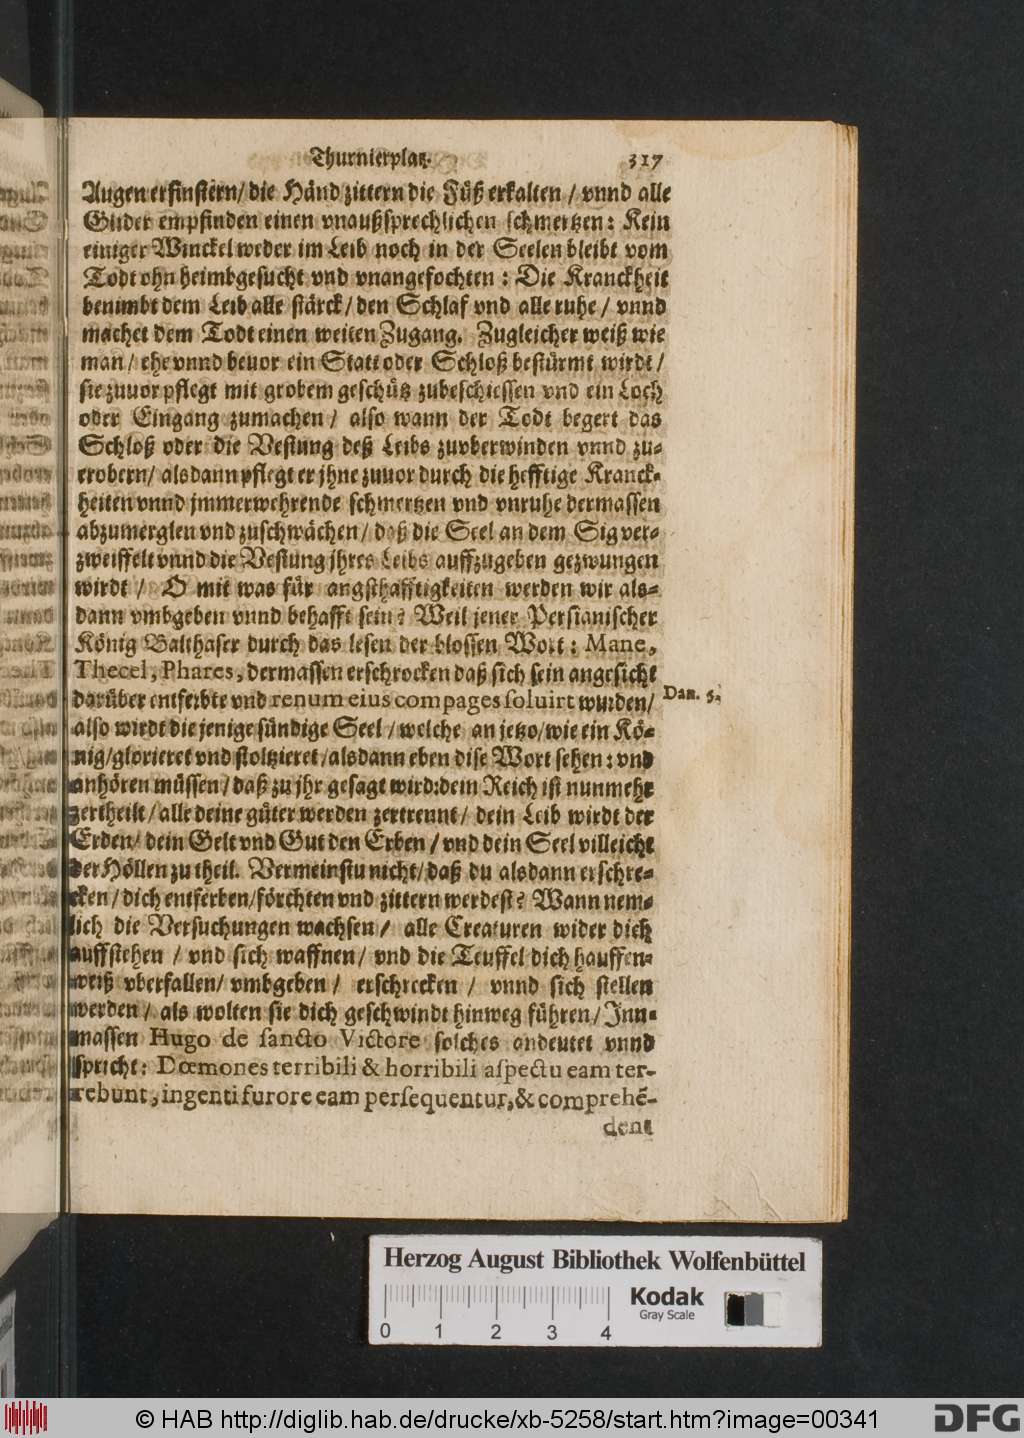 Thurnierplatz. 317
Augen erfinstern/ die Händ zittern die Füß erkalten / vnnd alle
Glider empfinden einen vnaußsprechlichen schmertzen: Kein
einiger Winckel weder im Leib noch in der Seelen bleibt vom
Todt ohn heimbgesucht vnd vnangefochten : Die Kranckheit
benimbt dem Leib alle stärck/ den Schlaf vnd alle ruhe / vnnd
machet dem Todt einen weiten Zugang. Zugleicher weiß wie
man / ehe vnnd beuor ein Statt oder Schloß bestürmt wirdt /
sie zuuor pflegt mit grobem geschütz zubeschiessen vnd ein Loch
oder Eingang zumachen / also wann der Todt begert das
Schloß oder die Vestung deß Leibs zuvberwinden vnnd zu-
erobern/ alsdann pflegt er jhne zuuor durch die hefftige Kranck-
heiten vnnd jmmerwehrende schmertzen vnd vnruhe dermassen
abzumerglen vnd zuschwächen / daß die Seel an dem Sig ver-
zweiffelt vnnd die Vestung jhres Leibs auffzugeben gezwungen
wirdt / O mit was für angsthafftigkeiten werden wir als-
dann vmbgeben vnnd behafft sein? Weil jener Persianischer
König Balthaser durch das lesen der blossen Wort : Mane,
Thecel, Phares, dermassen erschrocken daß sich sein angesicht
darüber entferbte vnd renum eius compages soluirt wurden/
Dan. 5.
also wirdt die jenige sündige Seel / welche an jetzo/ wie ein Kö-
nig/ glorieret vnd stoltzieret / alsdann eben dise Wort sehen : vnd
anhören müssen / daß zu jhr gesagt wird: dein Reich ist nunmehr
zertheilt / alle deine güter werden zertrennt / dein Leib wirdt der
Erden/ dein Gelt vnd Gut den Erben / vnd dein Seel villeicht
der Höllen zu theil. Vermeinstu nicht/ daß du alsdann erschre-
cken / dich entferben/ förchten vnd zittern werdest? Wann nem-
lich die Versuchungen wachsen / alle Creaturen wider dich
auffstehen / vnd sich waffnen / vnd die Teuffel dich hauffen-
weiß vberfallen/ vmbgeben / erschrecken / vnnd sich stellen
werden / als wolten sie dich geschwindt hinweg führen / Inn-
massen Hugo de sancto Victore solches andeutet vnnd
spricht: Dœmones terribili & horribili aspectu eam ter-
rebunt, ingenti furore eam persequentur, & comprehẽ-
dent
Herzog August Bibliothek Wolfenbüttel
Kodak
Gray Scale
0 1 2 3 4
© HAB http://diglib.hab.de/drucke/xb-5258/start.htm?image=00341
DFG